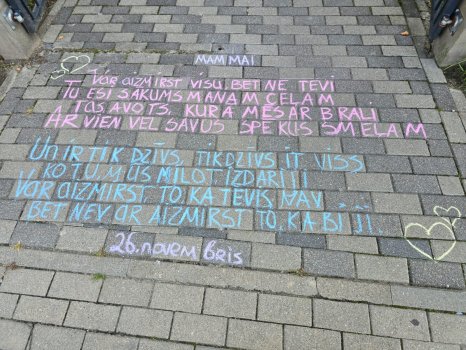 MAMMAI
VAR AIZMIRST VISU, BET NE TEVI
TU ESI SĀKUMS MANAM CEĻAM
TAS AVOTS, KURĀ MĒS AR BRĀLI
ARVIEN VĒL SAVUS SPĒKUS SMEĻAM
UN IR TIK DZĪVS, TIK DZĪVS IT VISS
KO TU, MŪS MĪLOT IZDARĪJI
VAR AIZMIRST TO, KA TEVIS NAV ...
BET NEVAR AIZMIRST TO, KA BIJI.
26. novembris